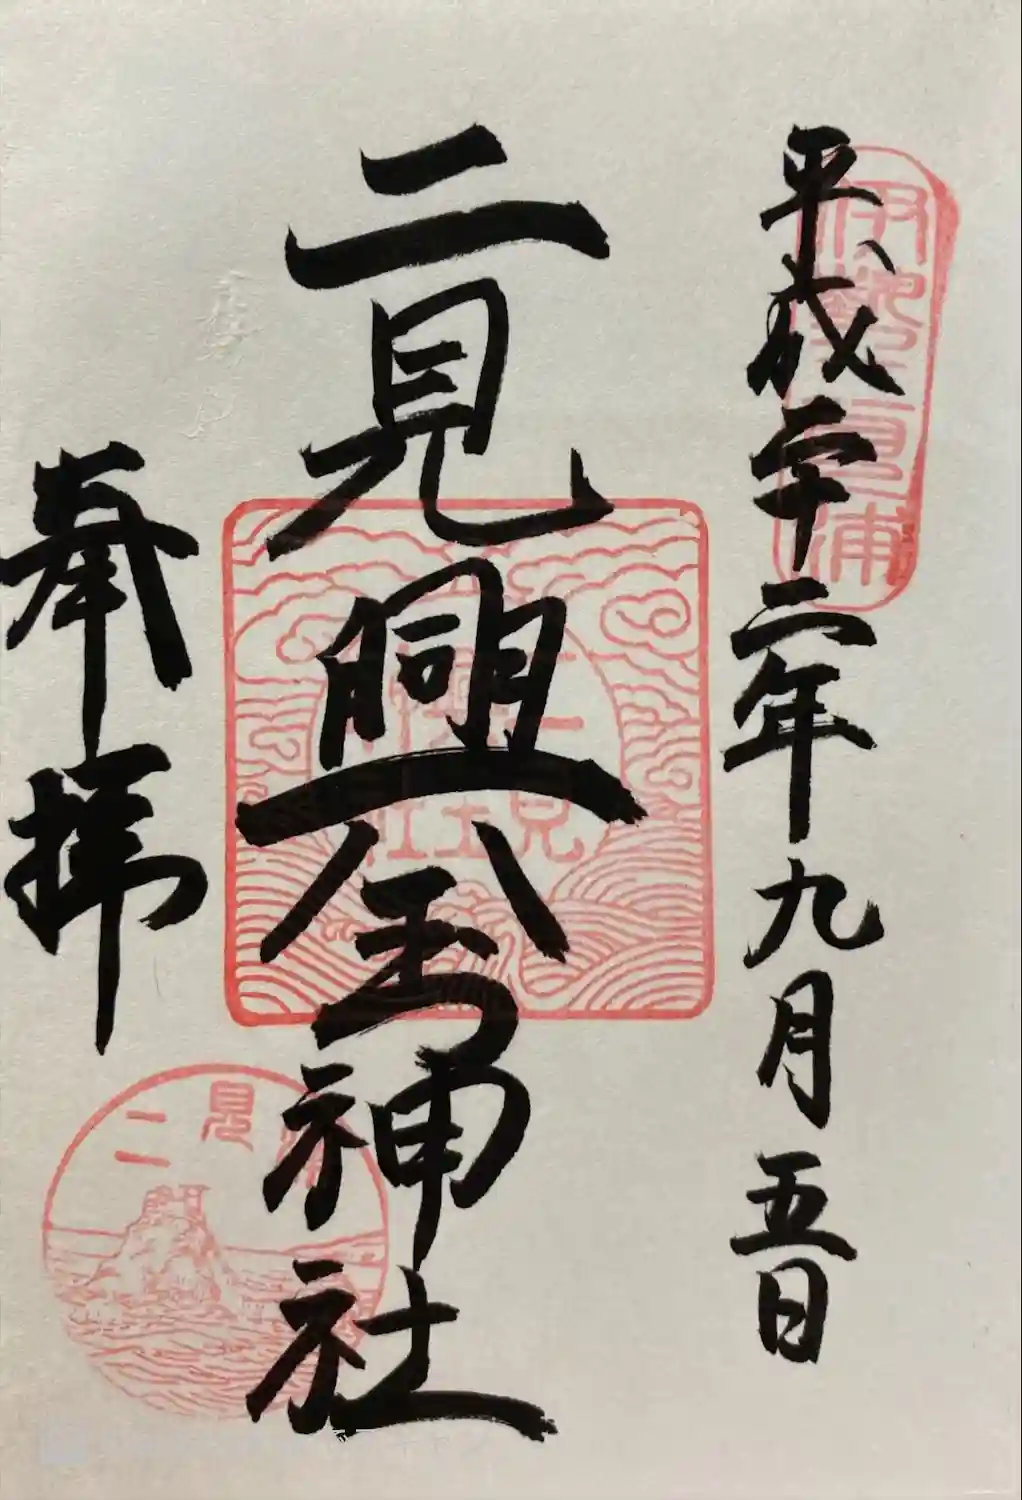 平成二十二年九月五日
伊勢二見浦
二見興玉神社
二見興玉神社
奉拝
二見